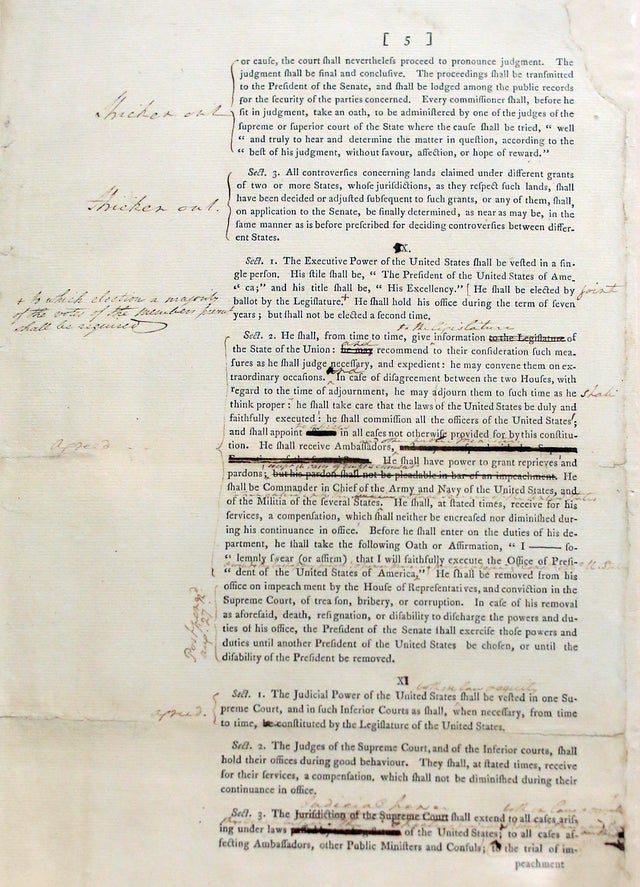 [ 5 ]
or cauſe, the court ſhall nevertheleſs proceed to pronounce judgment. The
judgment ſhall be final and concluſive. The proceedings ſhall be tranſmitted
to the Preſident of the Senate, and ſhall be lodged among the public records
for the ſecurity of the parties concerned. Every commiſſioner ſhall, before he
Stricken out
ſit in judgment, take an oath, to be adminiſtered by one of the judges of the
ſupreme or ſuperior court of the State where the cauſe ſhall be tried, “ well
“ and truly to hear and determine the matter in queſtion, according to the
“ beſt of his judgment, without favour, affection, or hope of reward.”
Sect. 3. All controverſies concerning lands claimed under different grants
of two or more States, whoſe juriſdictions, as they reſpect ſuch lands, ſhall
Stricken out.
have been decided or adjuſted ſubſequent to ſuch grants, or any of them, ſhall,
on application to the Senate, be finally determined, as near as may be, in the
ſame manner as is before preſcribed for deciding controverſies between differ-
ent States.
X.
Sect. 1. The Executive Power of the United States ſhall be veſted in a ſin-
gle person. His ſtile ſhall be, “ The Preſident of the United States of Ame
“ ca;” and his title ſhall be, “ His Excellency.” [ He ſhall be elected by joint
ballot by the Legiſlature.+ He ſhall hold his office during the term of ſeven
years ; but ſhall not be elected a ſecond time.
+ to which election a majority
of the votes of the members present
shall be required
to the legislature
Sect. 2. He ſhall, from time to time, give information to the Legiſlature of
and
the State of the Union : he may recommend to their conſideration ſuch mea-
ſures as he ſhall judge neceſſary, and expedient : he may convene them on ex-
and
traordinary occaſions. In caſe of diſagreement between the two Houſes, with
regard to the time of adjournment, he may adjourn them to ſuch time as he shall
think proper : he ſhall take care that the laws of the United States be duly and
faithfully executed : he ſhall commiſſion all the officers of the United States ;
and ſhall appoint in all caſes not otherwiſe provided for by this conſtitu-
agreed.
tion. He ſhall receive Ambaſſadors,
He ſhall have power to grant reprieves and
except in cases of impeachment
pardons ; but his pardon ſhall not be pleadable in bar of an impeachment. He
ſhall be Commander in Chief of the Army and Navy of the United States, and
of the Militia of the ſeveral States. He ſhall, at ſtated times, receive for his
ſervices, a compenſation, which ſhall neither be encreaſed nor diminiſhed dur-
ing his continuance in office. Before he ſhall enter on the duties of his de-
partment, he ſhall take the following Oath or Affirmation, “ I —— ſo-
“ lemnly ſwear (or affirm) that I will faithfully execute the Office of Preſi-
“ dent of the United States of America,” He ſhall be removed from his
office on impeachment by the Houſe of Repreſentatives, and conviction in the
Supreme Court, of treaſon, bribery, or corruption. In caſe of his removal
Postponed
Aug: 27th.
as aforeſaid, death, reſignation, or diſability to diſcharge the powers and du-
ties of his office, the Preſident of the Senate ſhall exerciſe thoſe powers and
duties until another Preſident of the United States be choſen, or until the
diſability of the Preſident be removed.
XI
both in law & equity
Sect. 1. The Judicial Power of the United States ſhall be veſted in one Su-
agreed.
preme Court, and in ſuch Inferior Courts as ſhall, when neceſſary, from time
to time, be conſtituted by the Legiſlature of the United States.
Sect. 2. The Judges of the Supreme Court, and of the Inferior courts, ſhall
hold their offices during good behaviour. They ſhall, at ſtated times, receive
for their ſervices, a compenſation. which ſhall not be diminiſhed during their
continuance in office.
Judicial Power
Sect. 3. The Juriſdiction of the Supreme Court ſhall extend to all caſes ariſ-
ing under laws paſſed by the Legiſlature of the United States ; to all caſes af-
fecting Ambaſſadors, other Public Miniſters and Conſuls ; to the trial of im-
peachment